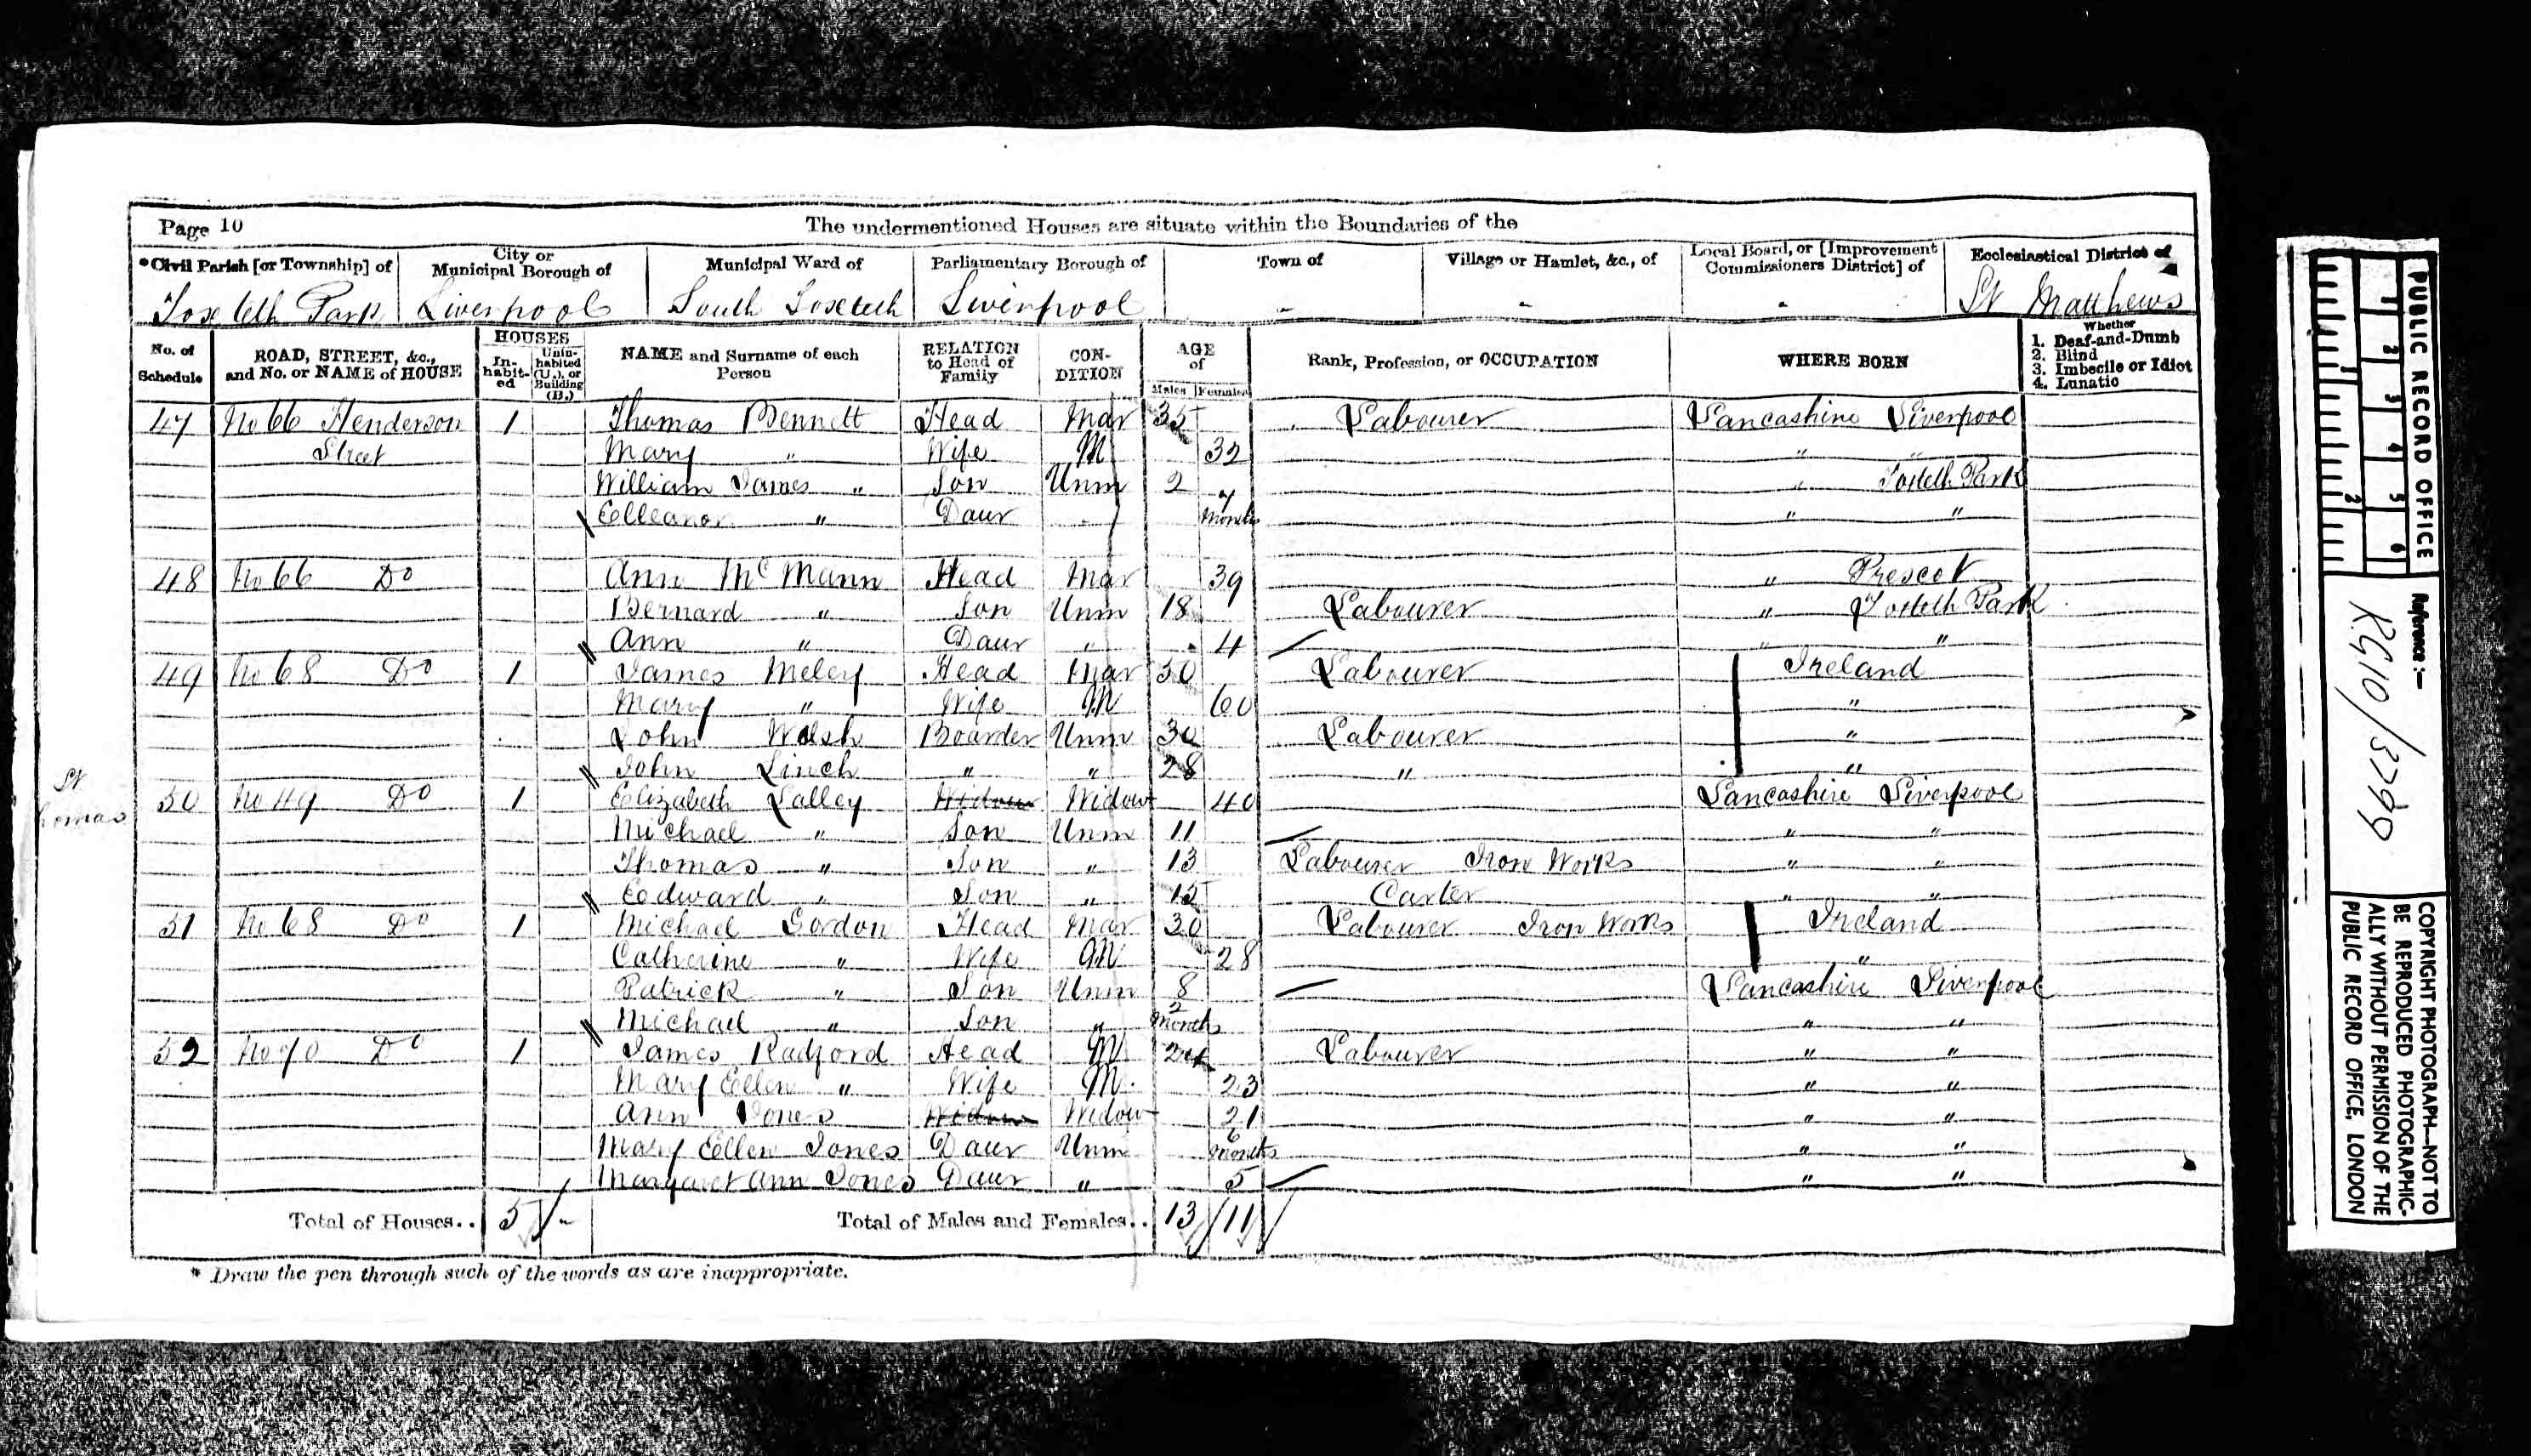 Page 10 The undermentioned Houses are situate within the Boundaries of the
*Civil Parish [or Township] of City or Municipal Borough of Municipal Ward of Parliamentary Borough of Town of Village or Hamlet, &c., of Local Board, or [Improvement Commissioners District] of Ecclesiastical District of
Toxteth Park Liverpool South Toxteth Liverpool - - - St Matthews
No. of Schedule ROAD, STREET, &c., and No. or NAME of HOUSE HOUSES Inhabited Uninhabited (U.), or Building (B.) NAME and Surname of each Person RELATION to Head of Family CONDITION AGE of Males Females Rank, Profession, or OCCUPATION WHERE BORN Whether 1. Deaf-and-Dumb 2. Blind 3. Imbecile or Idiot 4. Lunatic
47 No 66 Henderson 1 Thomas Bennett Head Mar 35 Labourer Lancashire Liverpool
Street Mary " Wife M 32 " "
William James " Son Unm 2 " Toxteth Park
Elleanor " Daur 7 Months " "
48 No 66 Do Ann Mc Mann Head Mar 39 " Prescot
Bernard " Son Unm 18 Labourer " Toxteth Park
Ann " Daur " 4 " "
49 No 68 Do 1 James Meley Head Mar 50 Labourer Ireland
Mary " Wife M 60 "
John Walsh Boarder Unm 30 Labourer "
John Linch " " 28 " "
St
homas
50 No 49 Do 1 Elizabeth Lalley Widow Widow 40 Lancashire Liverpool
Michael " Son Unm 11 " "
Thomas " Son " 13 Labourer Iron Works " "
Edward " Son " 15 Carter " "
51 No 68 Do 1 Michael Gordon Head Mar 30 Labourer Iron Works Ireland
Catherine " Wife M 28 "
Patrick " Son Unm 8 Lancashire Liverpool
Michael " Son " 2 Months " "
52 No 70 Do 1 James Radford Head M 24 Labourer " "
Mary Ellen " Wife M. 23 " "
Ann Jones Widow Widow 21 " "
Mary Ellen Jones Daur Unm 6 Months " "
Margaret Ann Jones Daur " 5 " "
Total of Houses.. 5 - Total of Males and Females.. 13 11
* Draw the pen through such of the words as are inappropriate.
PUBLIC RECORD OFFICE
1 2 3 4 5 6
1 2
Reference :—
RG10/3799
COPYRIGHT PHOTOGRAPH—NOT TO
BE REPRODUCED PHOTOGRAPHIC-
ALLY WITHOUT PERMISSION OF THE
PUBLIC RECORD OFFICE, LONDON